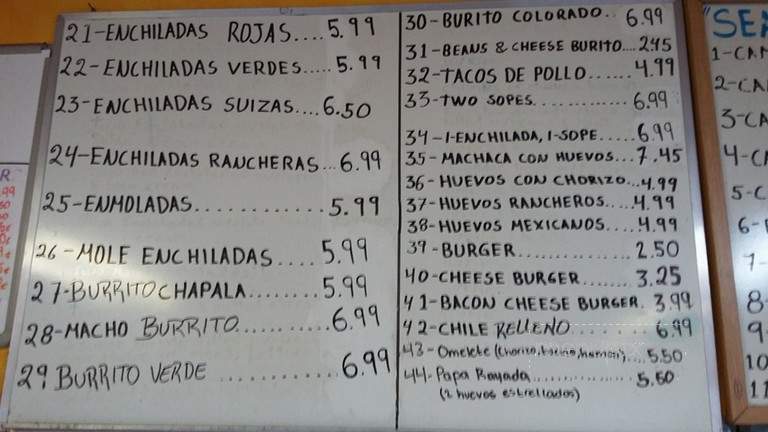 21-ENCHILADAS ROJAS....5.99
22-ENCHILADAS VERDES.....5.99
23-ENCHILADAS SUIZAS....6.50
24-ENCHILADAS RANCHERAS...6.99
25-ENMOLADAS............5.99
26-MOLE ENCHILADAS....5.99
27-BURRITO CHAPALA........5.99
28-MACHO BURRITO..........6.99
29 BURRITO VERDE ............6.99
30-BURITO COLORADO..6.99
31-BEANS & CHEESE BURITO....2.45
32-TACOS DE POLLO......4.99
33-TWO SOPES.............6.99
34-1-ENCHILADA, 1-SOPE.....6.99
35-MACHACA CON HUEVOS...7.45
36-HUEVOS CON CHORIZO...4.99
37-HUEVOS RANCHEROS....4.99
38-HUEVOS MEXICANOS....4.99
39-BURGER..............2.50
40-CHEESE BURGER.......3.25
41-BACON CHEESE BURGER.3.99
42-CHILE RELLENO..........6.99
43-Omelete (Chorizo, tocino, hamon)....5.50
44-Papa Rayada...............5.50
(2 huevos estrellados)
"SEA
1-CAM
2-CA
3-CA
4-C
5-C
6-
7-
8-
9-
10
11